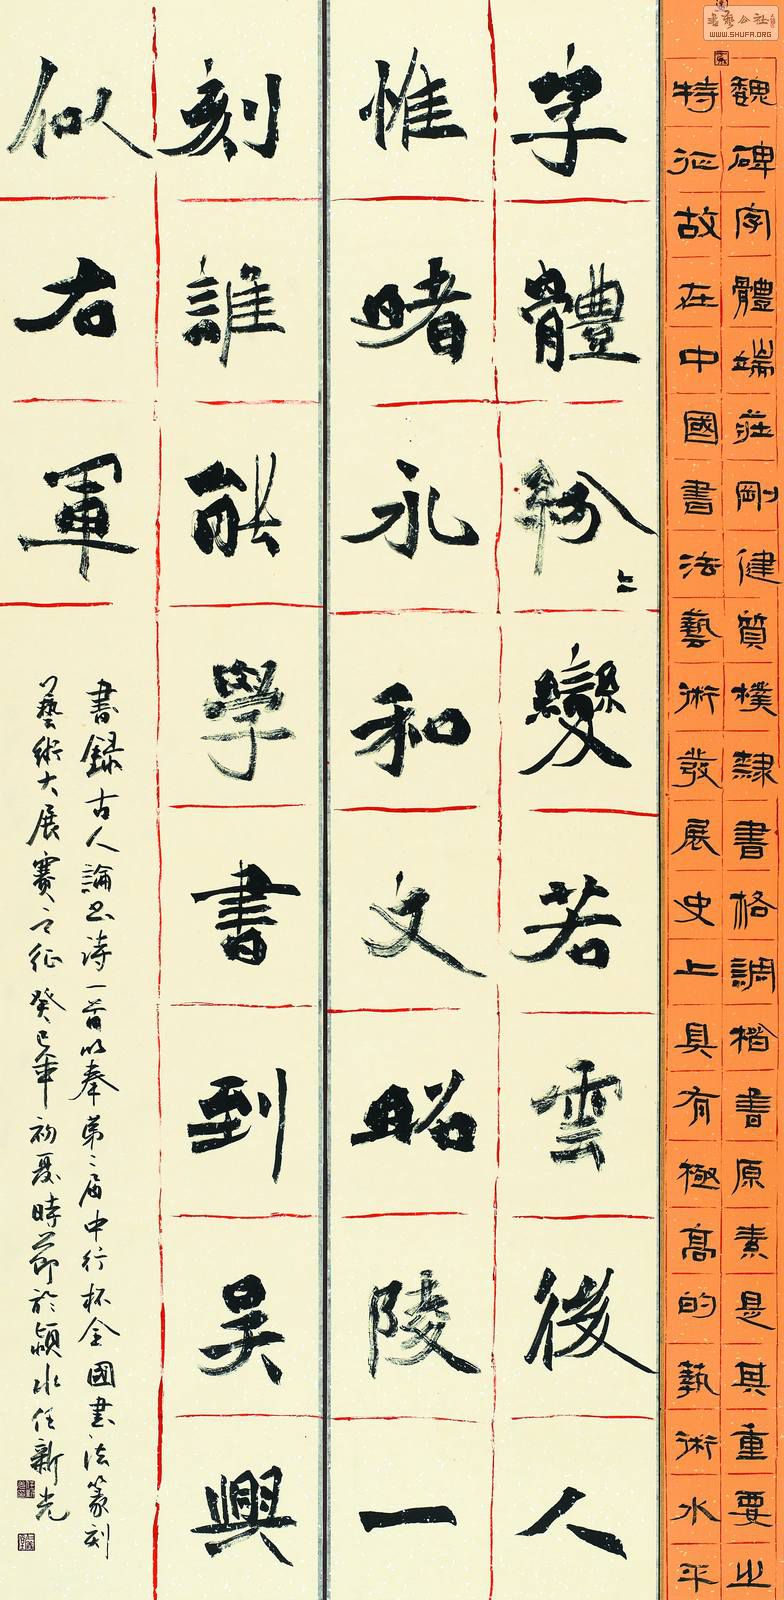 魏碑字體端莊剛健質樸隸書格調楷書原素是其重要之
特征故在中國書法藝術發展史上具有極高的藝術水平
字體紛〻變若雲後人
惟睹永和文昭陵一
刻誰能學書到吴興
似右軍
書録古人論書詩一首以奉第三届中行杯全國書法篆刻
藝術大展賽之征癸巳年初夏時節於潁水任新光
書藝公社
WWW.SHUFA.ORG